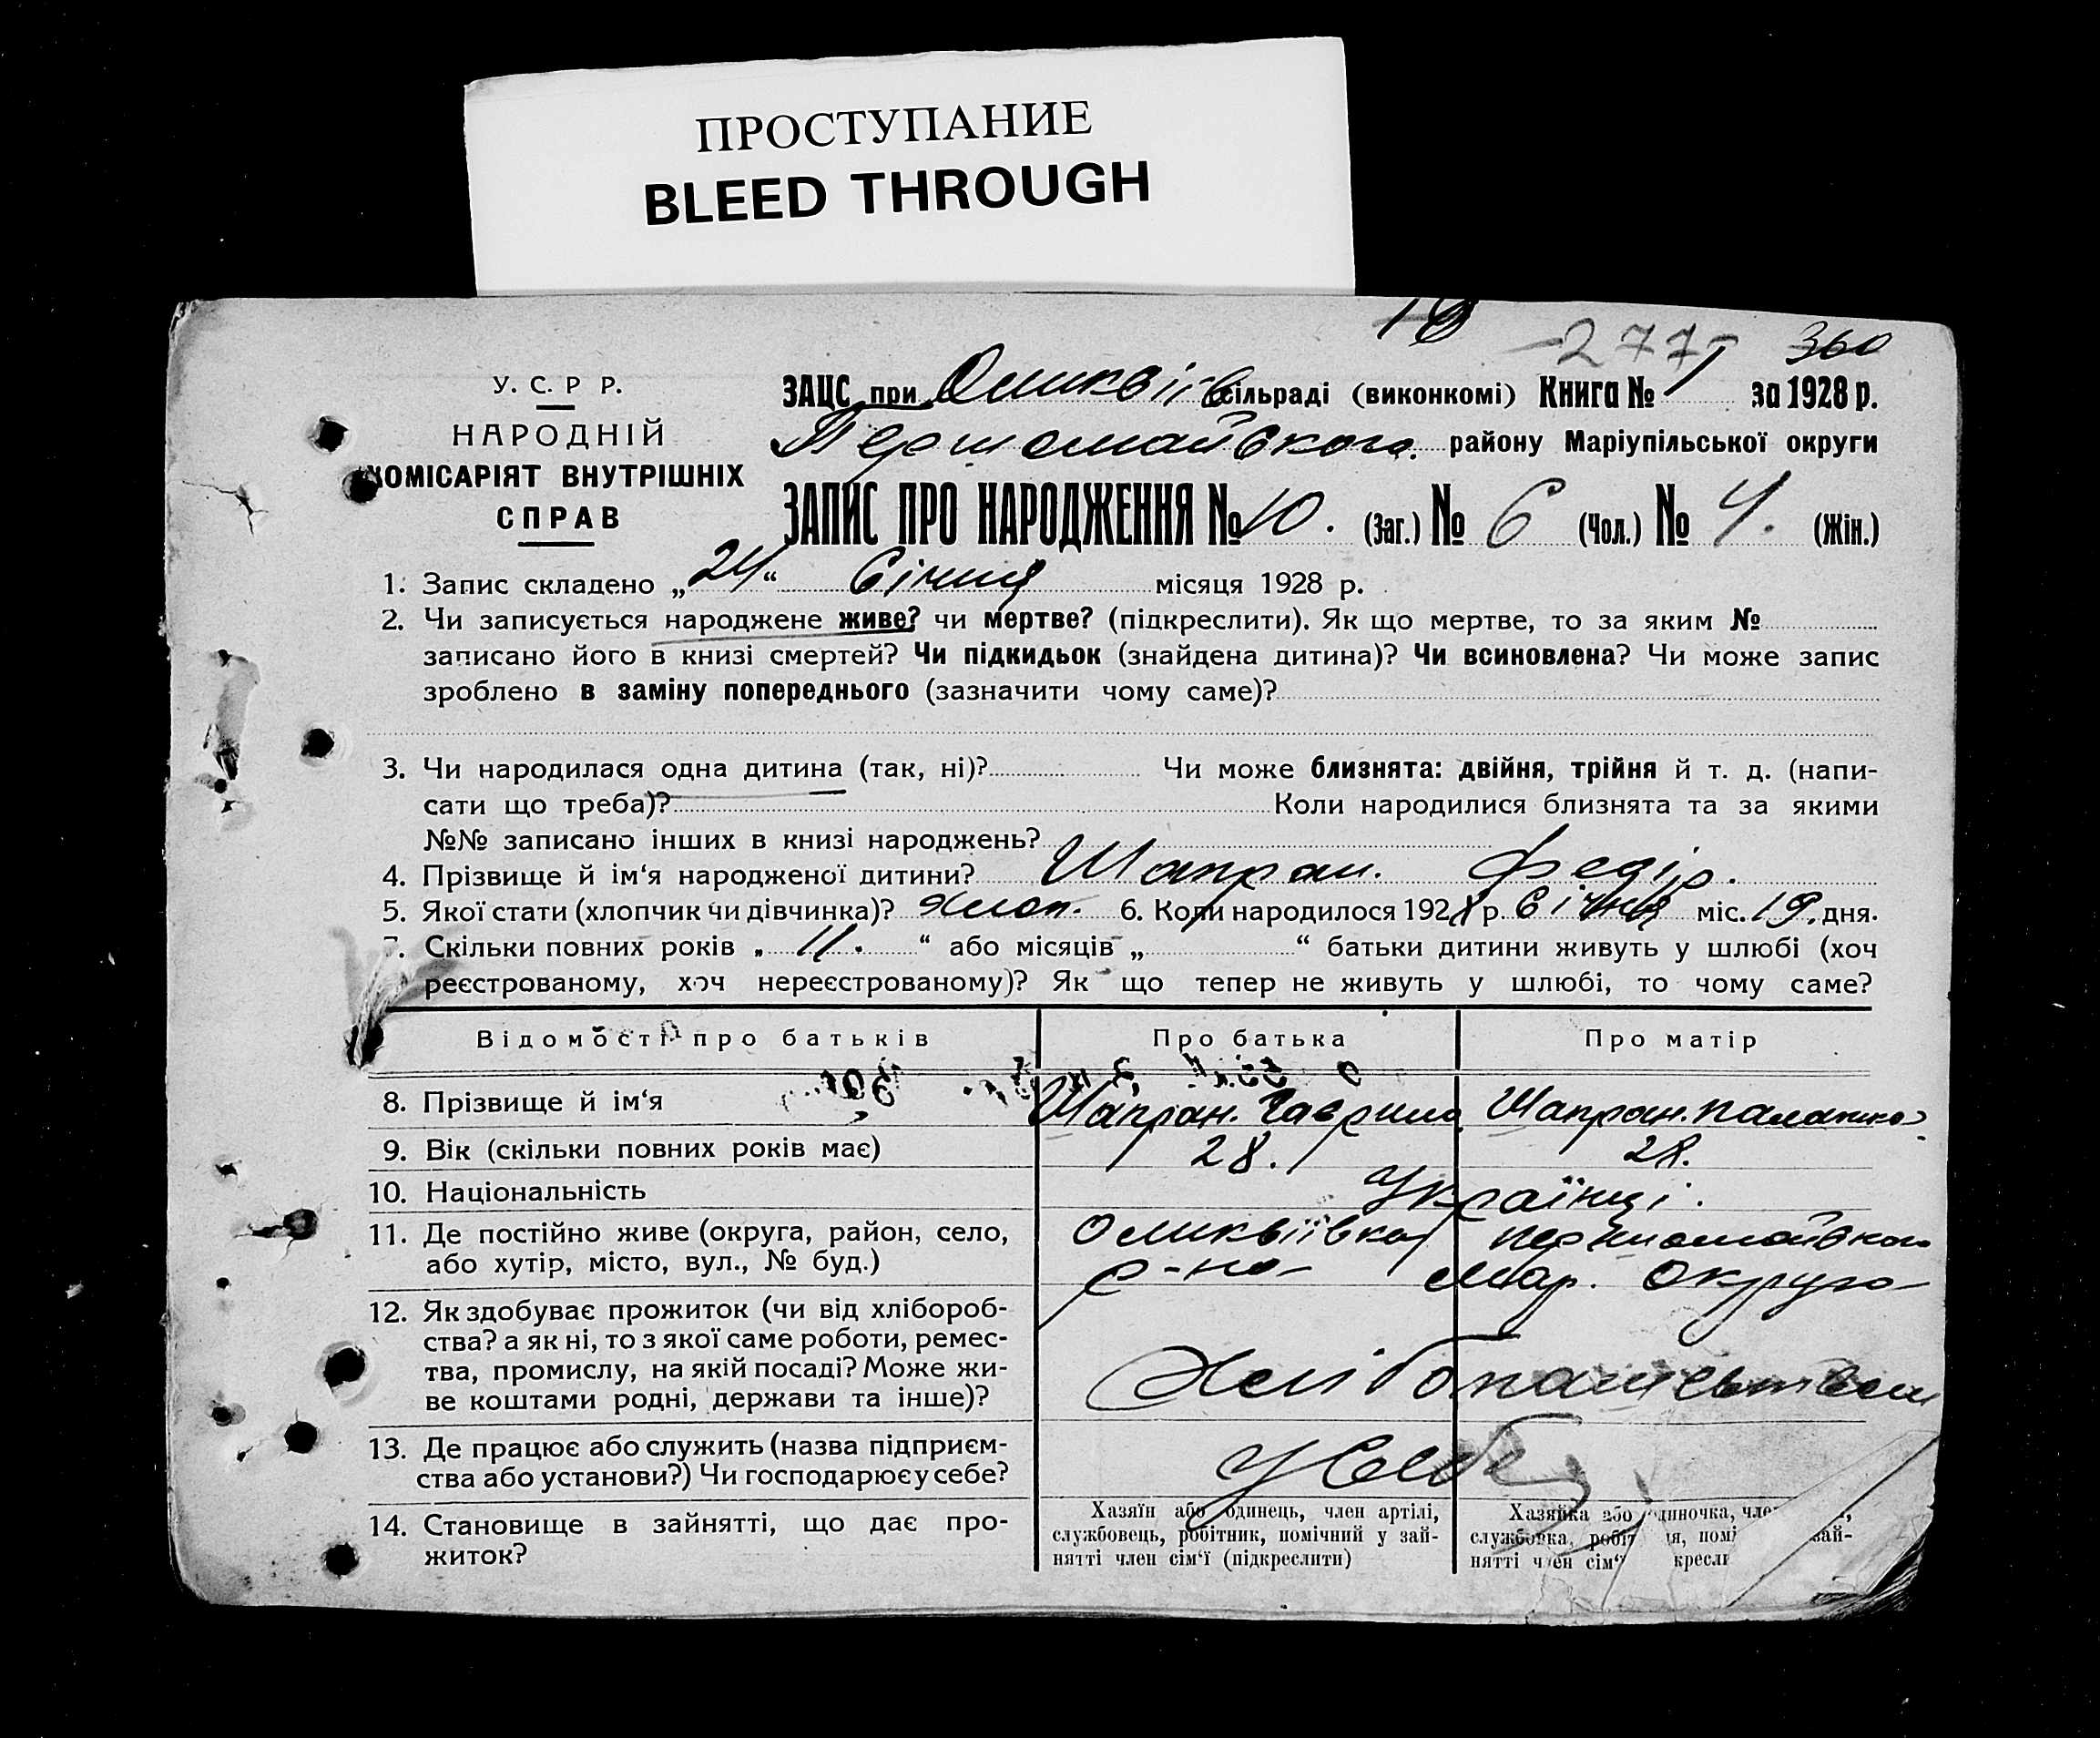 ПРОСТУПАНИЕ
BLEED THROUGH
-277- 360
У. С. Р Р.
НАРОДНІЙ
КОМІСАРІЯТ ВНУТРІШНІХ
СПРАВ
ЗАЦС при Оликвіїв сільраді (виконкомі) Книга № 1 за 1928 р.
Першомайського району Маріупільської округи
ЗАПИС ПРО НАРОДЖЕННЯ № 10. (Заг.) № 6 (Чол.) № 4. (Жін.)
1. Запис складено „24“ Січня місяця 1928 р.
2. Чи записується народжене живе? чи мертве? (підкреслити). Як що мертве, то за яким №
записано його в книзі смертей? Чи підкидьок (знайдена дитина)? Чи всиновлена? Чи може запис
зроблено в заміну попереднього (зазначити чому саме)?
3. Чи народилася одна дитина (так, ні)? Чи може близнята: двійня, трійня й т. д. (напи-
сати що треба)? Коли народилися близнята та за якими
№№ записано інших в книзі народжень?
4. Прізвище й ім‘я народженої дитини? Шапран. Федір.
5. Якої стати (хлопчик чи дівчинка)? Хлоп. 6. Коли народилося 1928 р. Січня міс. 19. дня.
7. Скільки повних років „ 11. “ або місяців „ “ батьки дитини живуть у шлюбі (хоч
реєстрованому, хоч нереєстрованому)? Як що тепер не живуть у шлюбі, то чому саме?
Відомості про батьків Про батька Про матір
8. Прізвище й ім‘я Шапран. Гаврило Шапран. Палажка
9. Вік (скільки повних років має) 28. 28.
10. Національність Українці.
11. Де постійно живе (округа, район, село, Оликвіївка Першомайського
або хутір, місто, вул., № буд.) р-на Мар. Округа
12. Як здобуває прожиток (чи від хлібороб-
ства? а як ні, то з якої саме роботи, ремес-
тва, промислу, на якій посаді? Може жи-
ве коштами родні, держави та інше)? Хлібопашеством
13. Де працює або служить (назва підприєм-
ства або установи?) Чи господарює у себе? У себе
14. Становище в зайнятті, що дає про-
житок?
Хазяїн або одинець, член артілі,
службовець, робітник, помічний у зай-
нятті член сім‘ї (підкреслити)
Хазяйка або одиночка,
службовка,
нятті член сім‘